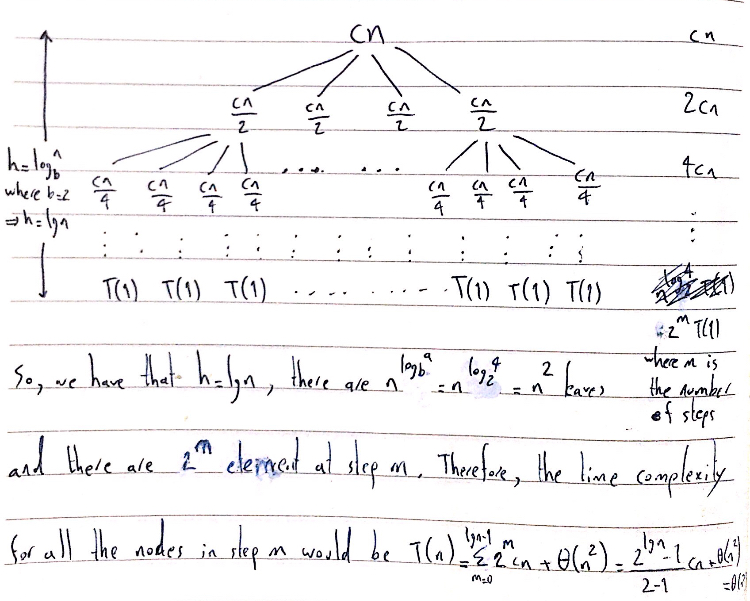 cn cn
cn/2 cn/2 cn/2 cn/2 2cn
h=log_b^n
where b=2
⇒h=lgn
cn/4 cn/4 cn/4 cn/4 .... ... cn/4 cn/4 cn/4 cn/4 4cn
T(1) T(1) T(1) .... ...... T(1) T(1) T(1)
2^m T(1)
where m is
the number
of steps
So, we have that h=lgn, there are n^{log_b^a} = n^{log_2^4} = n^2 leaves
and there are 2^m element at step m. Therefore, the time complexity
for all the nodes in step m would be T(n) = Σ_{m=0}^{lgn-1} 2^m cn + θ(n^2) = (2^{lgn}-1)/(2-1) cn + θ(n^2)